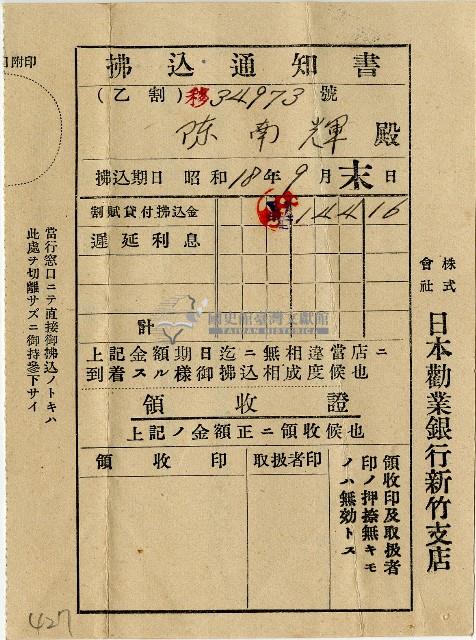 拂込通知書
(乙割) 移 34973 號
陈南輝 殿
拂込期日 昭和18年9月末日
割賦貸付拂込金 144 16
遲延利息
計
上記金額期日迄ニ無相違當店ニ
到着スル樣御拂込相成度候也
領收證
上記ノ金額正ニ領收候也
領收印
取扱者印
領收印及取扱者
印ノ押捺無キモ
ノハ無効トス
株式
會社
日本勸業銀行新竹支店
當行窓口ニテ直接御拂込ノトキハ
此處ヲ切離サズニ御持參下サイ
附印
國史館臺灣文獻館
TAIWAN HISTORICA
427